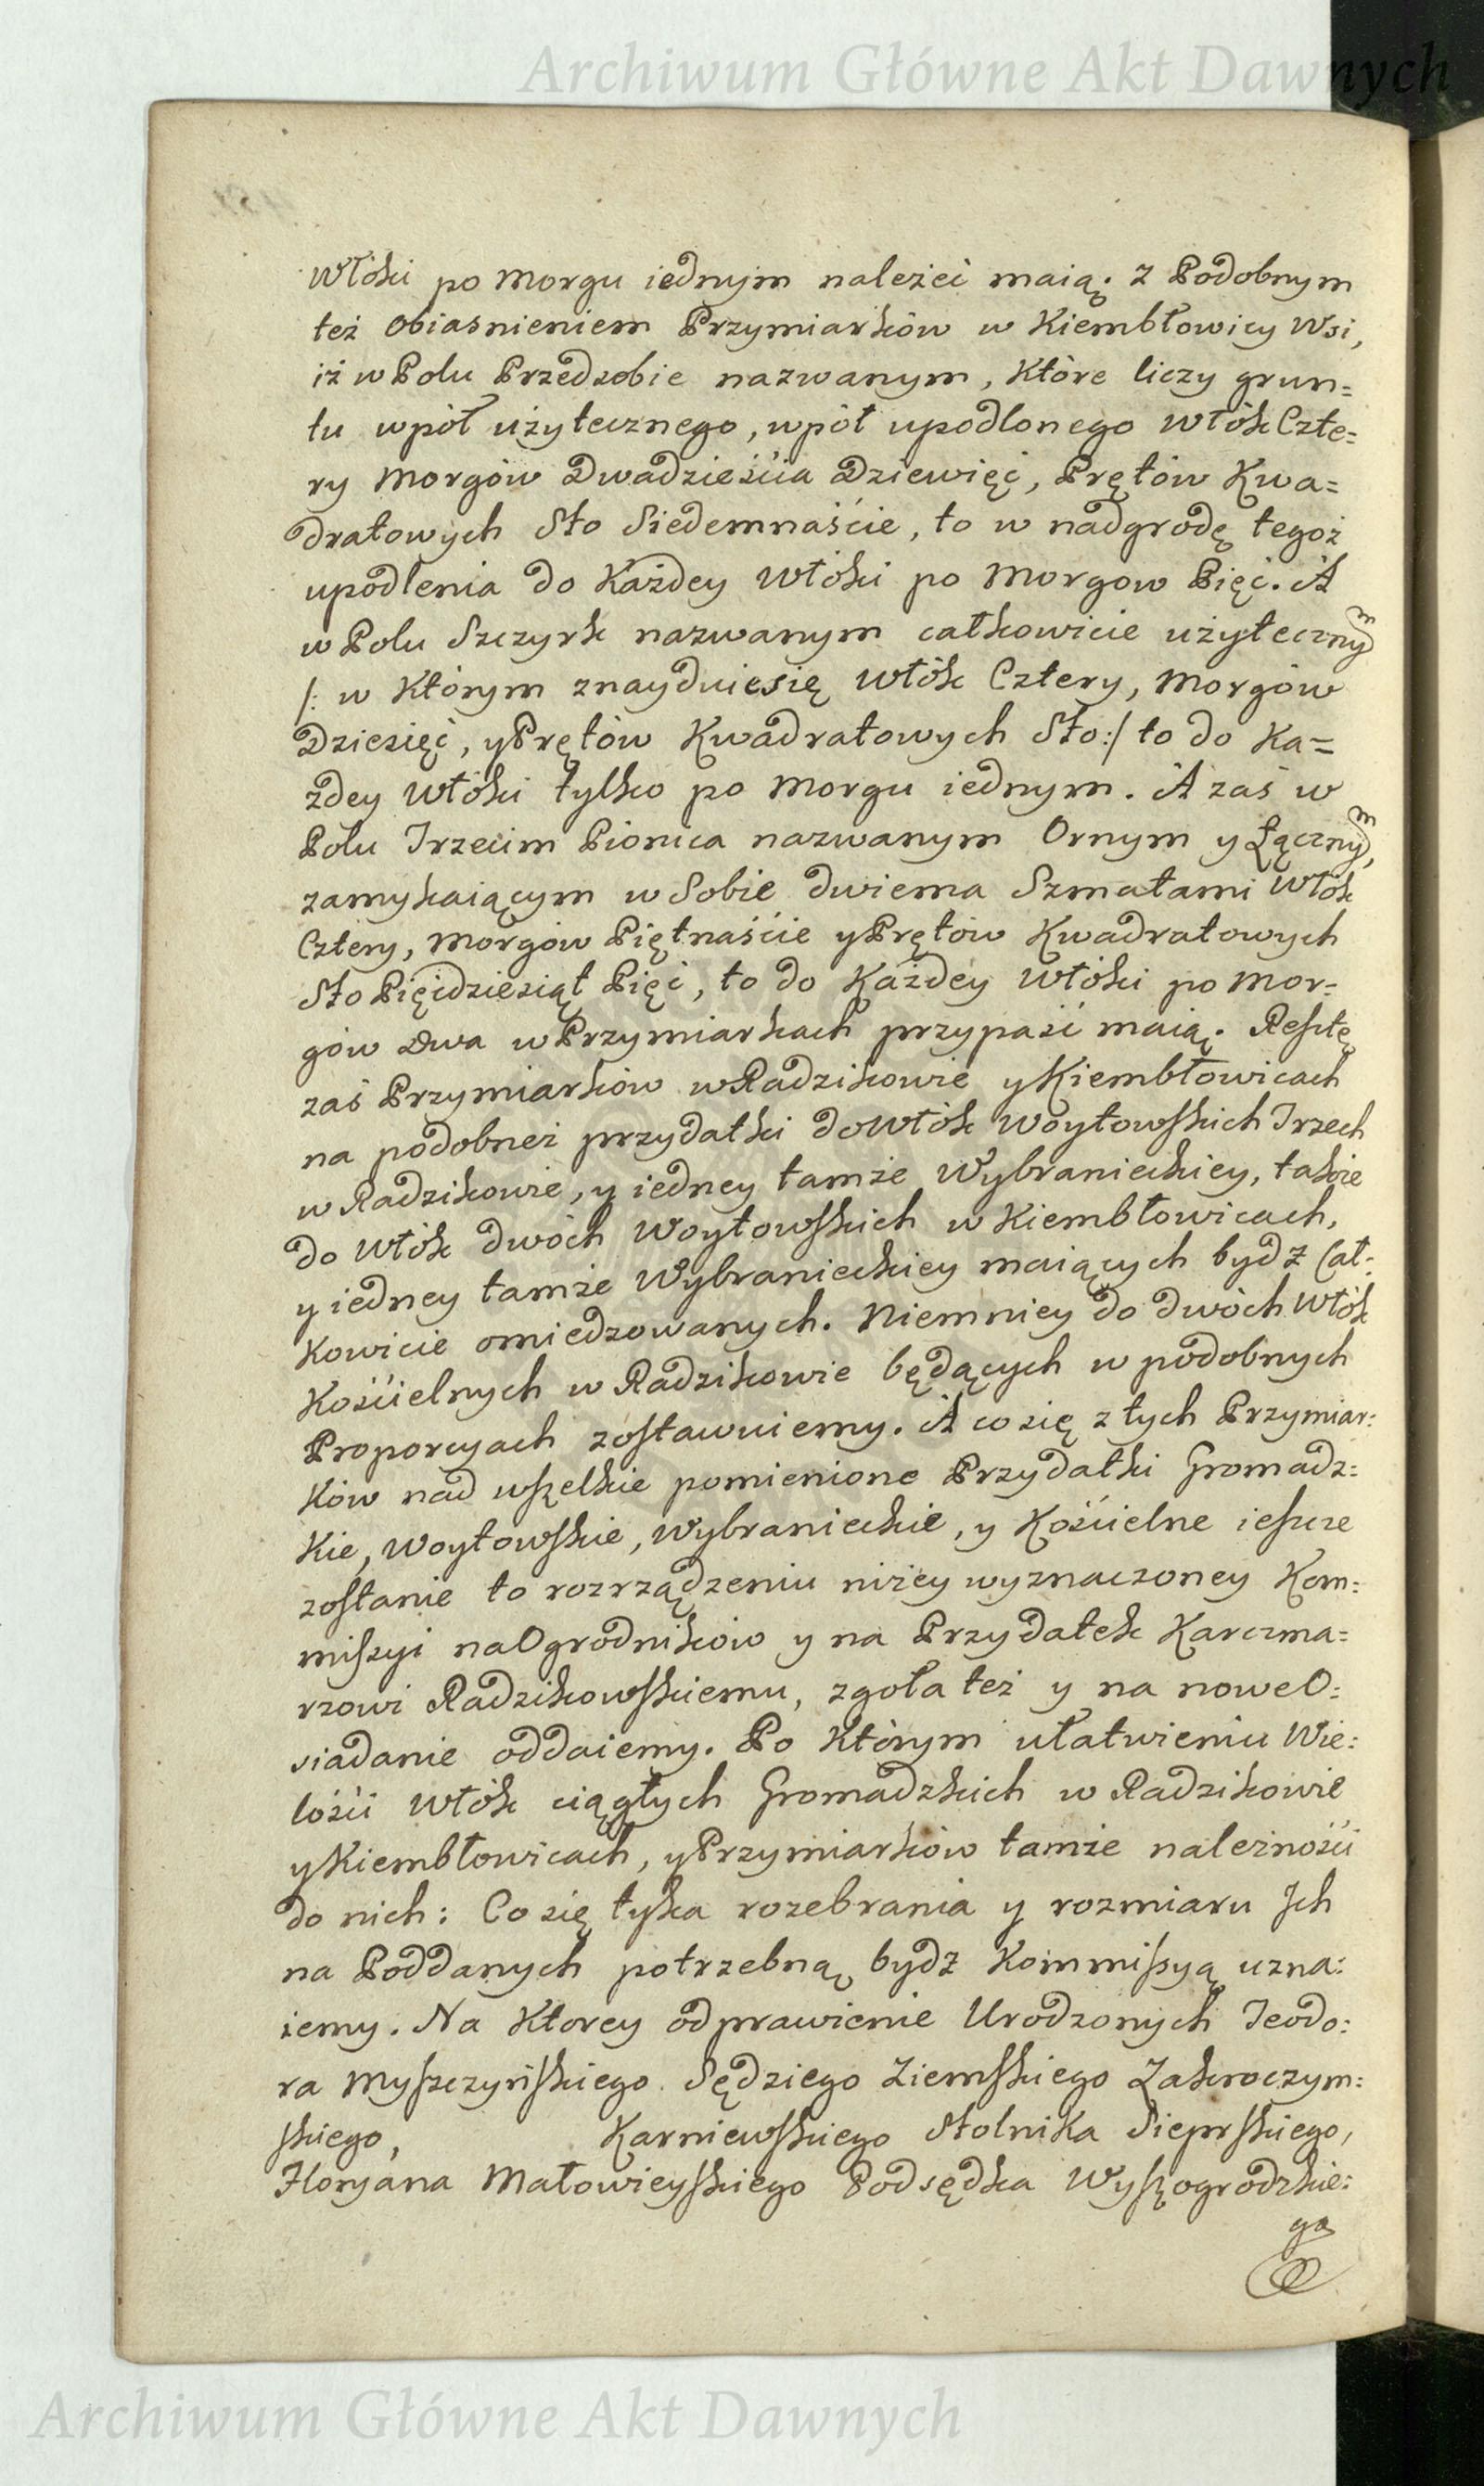 Archiwum Główne Akt Dawnych
Włóki po Morgu iednym należeć maią. Z Podobnym
też Obiasnieniem Przymiarków w Kiembłowicy Wsi,
iż w Polu Przedsobie nazwanym, Które liczy grun=
tu wpół użytecznego, wpół upodlonego Włók Czte=
ry Morgów Dwadzieścia Dziewięć, Prętów Kwa=
dratowych Sto Siedemnaście, to w nadgrodę tegoż
upodlenia do Każdey Włóki po Morgow Pięć. A
w Polu Szczyrk nazwanym całkowicie użytecznym
/: w Którym znayduiesię Włók Cztery, Morgów
Dziesięć, y Prętów Kwadratowych Sto :/ to do Ka=
żdey Włóki tylko po Morgu iednym. A zaś w
Polu Trzecim Pionica nazwanym Ornym y Łącznym,
zamykaiącym w Sobie dwiema Szmatami Włók
Cztery, Morgów Piętnaście y Prętów Kwadratowych
Sto Pięćdziesiąt Pięć, to do Każdey Włóki po Mor=
gów Dwa w Przymiarkach przypaść maią. Resztę
zaś Przymiarków w Radzikowie y Kiembłowicach
na podobneż przydatki do Włók Woytowskich Trzech
w Radzikowie, y iedney tamże Wybranieckiey, także
do Włók dwóch Woytowskich w Kiembłowicach,
y iedney tamże Wybranieckiey maiących bydź Cał=
Kowicie omiedzowanych. Niemniey do dwóch Włók
Kościelnych w Radzikowie będących w podobnych
Proporcyach zostawuiemy. A co się z tych Przymiar=
Ków nad wszelkie pomienione Przydatki Gromadz=
Kie, Woytowskie, Wybranieckie, y Kościelne ieszcze
zostanie to rozrządzeniu niżey wyznaczoney Kom=
missyi na Ogrodników y na Przydatek Karczma=
rzowi Radzikowskiemu, zgoła też y na nowe O=
siadanie oddaiemy. Po Którym ułatwieniu Wie=
lości Włók ciągłych Gromadzkich w Radzikowie
y Kiembłowicach, y Przymiarków tamże należności
do nich: Co się tyka rozebrania y rozmiaru Ich
na Poddanych potrzebną bydź Kommissyą uzna=
iemy. Na Ktorey odprawienie Urodzonych Teodo=
ra Myszczyńskiego Sędziego Ziemskiego Zakroczym=
skiego, Karniewskiego Stolnika Sieprskiego,
Floryana Małowieyskiego Podsędka Wyszogrodzkie=
go
Archiwum Główne Akt Dawnych